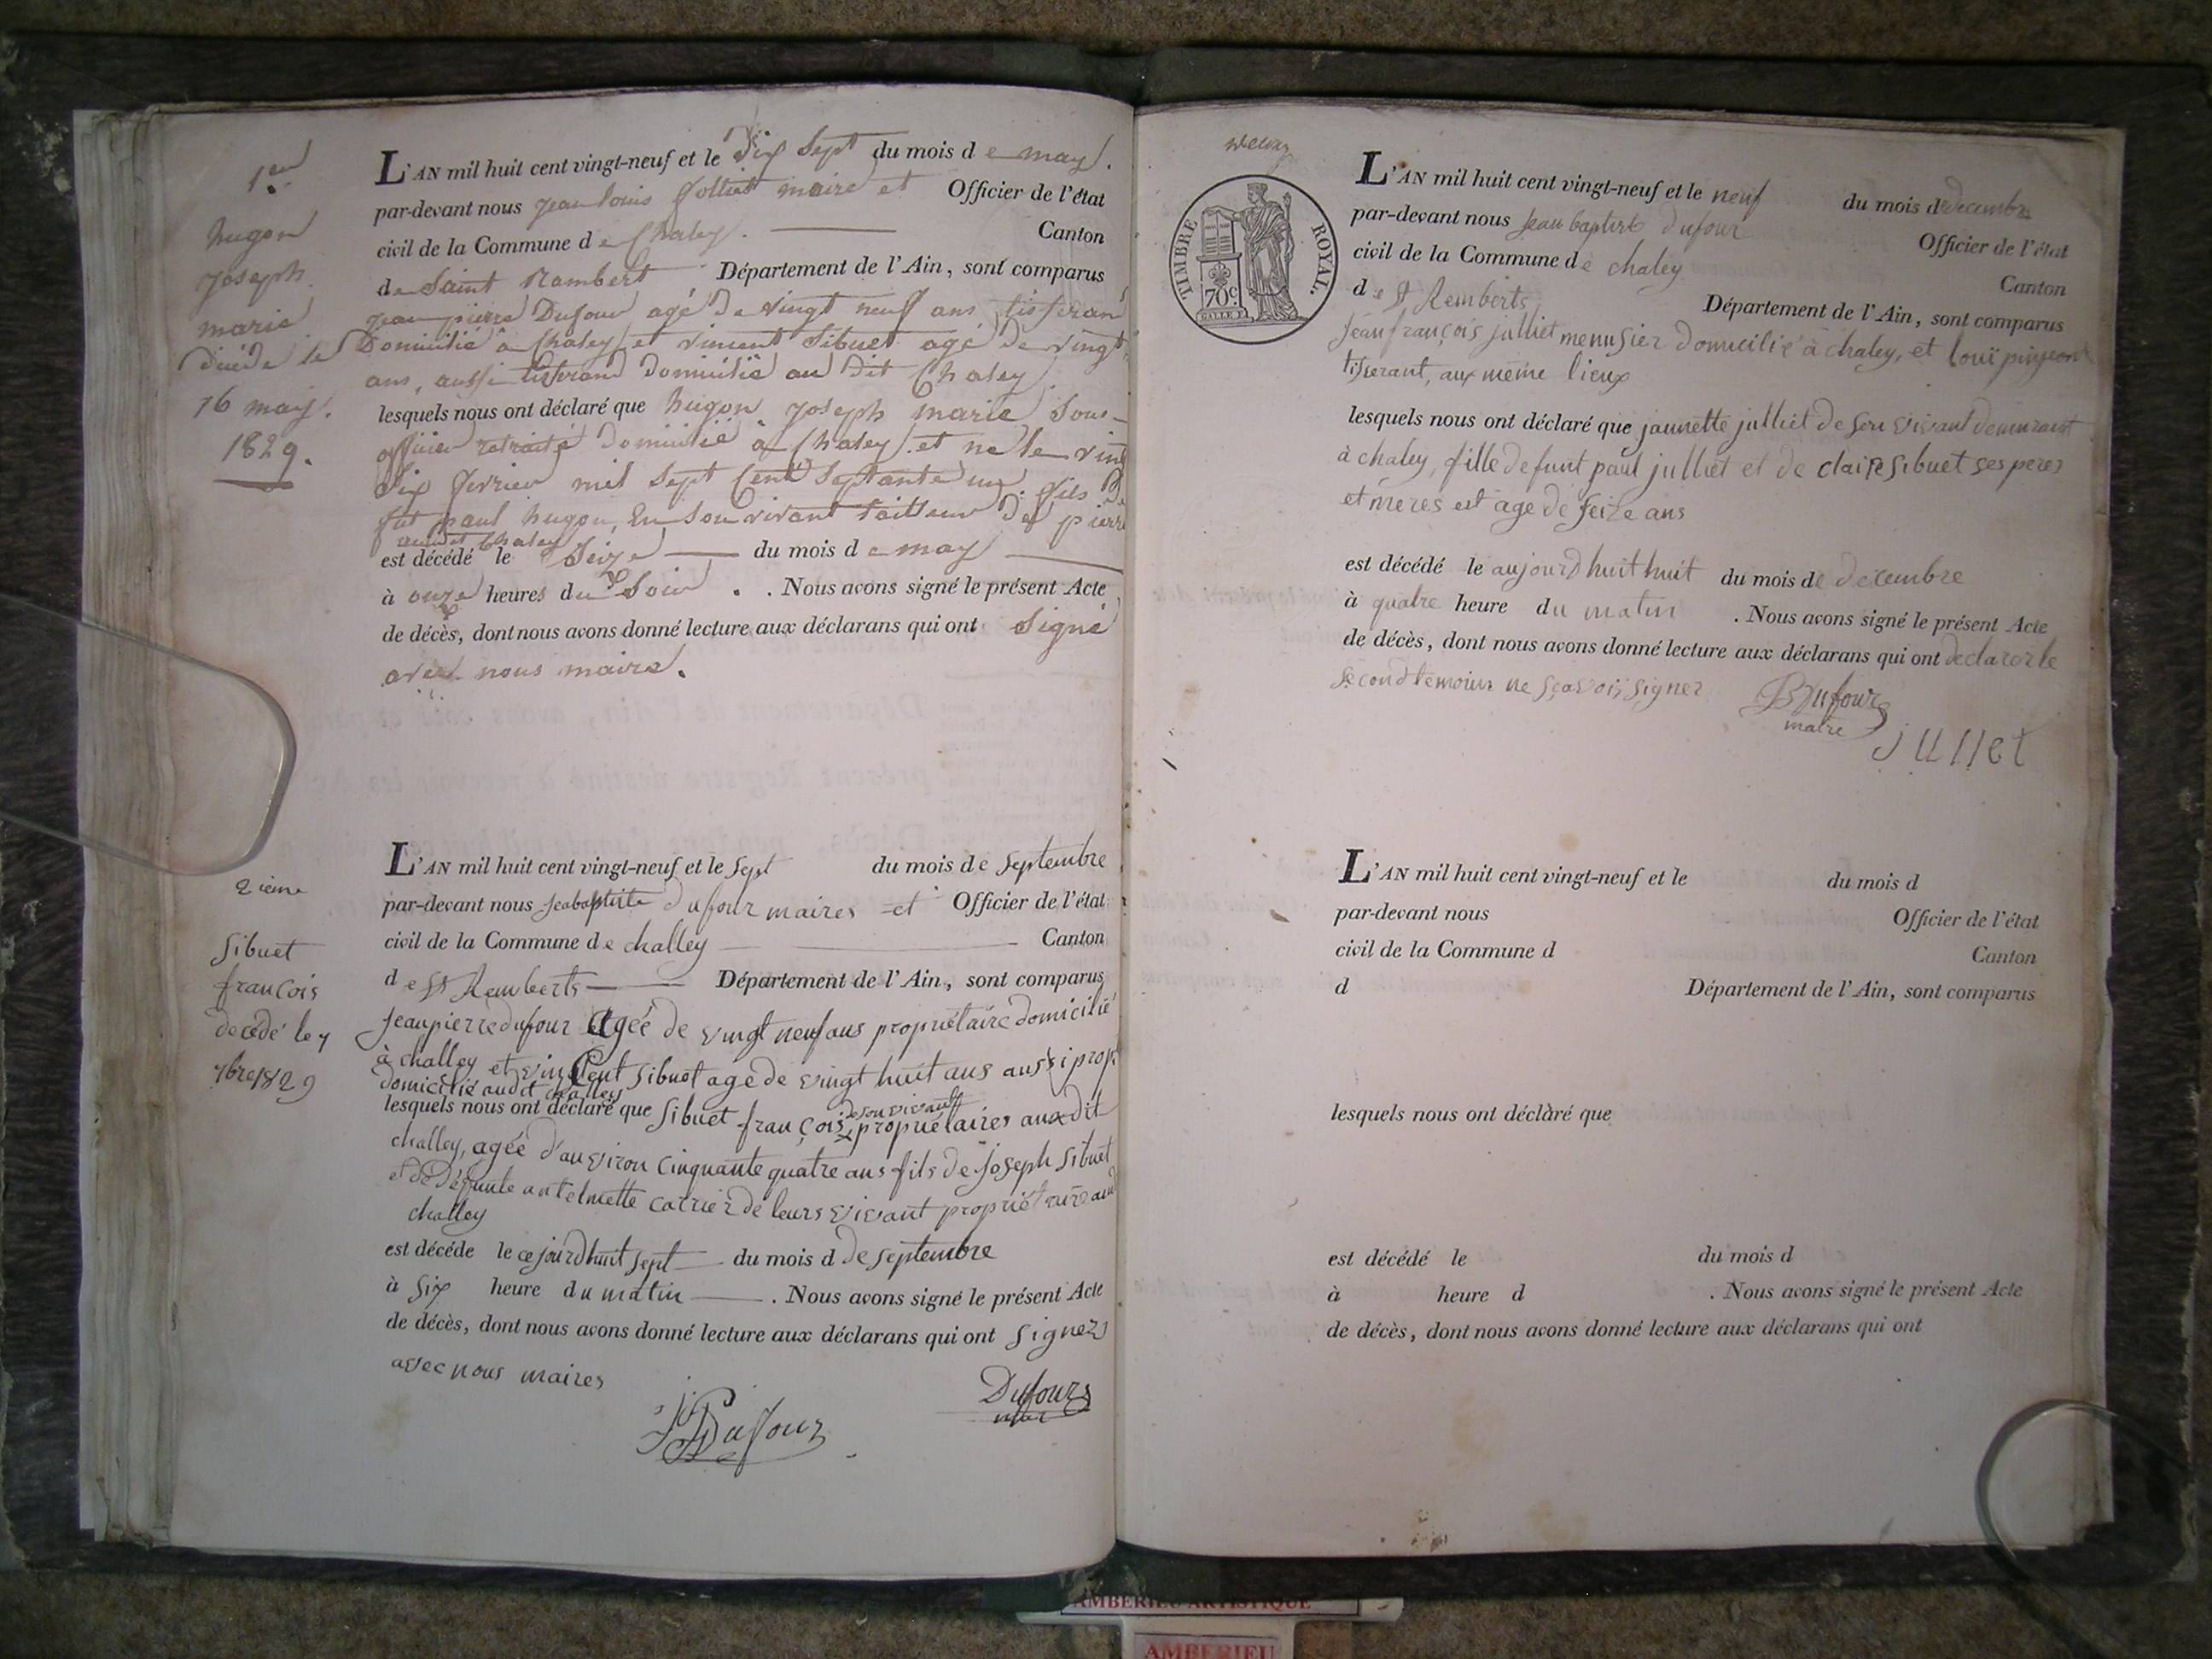 1er
hugon
joseph
marie
décédé le
16 may.
1829.
L'AN mil huit cent vingt-neuf et le dix sept du mois de may.
par-devant nous jean louis jolliet maire et Officier de l'état
civil de la Commune de Chaley. Canton
de Saint Rambert Département de l'Ain, sont comparus
jean pierre Dufour agé de vingt neuf ans tisseran
Domicilié à Chaley et vincent Sibuet agé de vingt
ans, aussi tisserand domicilié au dit Chaley
lesquels nous ont déclaré que hugon joseph marie Sous-
officier retraité domicilié à Chaley et né le vin
Six fevrier mil Sept Cent Septante un. fils De
fut paul hugon, En Son vivant tailleur De pierre
audit Chaley
est décédé le Seize du mois de may
à onze heures du Soir . . Nous avons signé le présent Acte
de décès, dont nous avons donné lecture aux déclarans qui ont Signé
avec nous maire.
2ieme
Sibuet
francois
decedé le 7
7bre 1829
L'AN mil huit cent vingt-neuf et le Sept du mois de Septembre
par-devant nous jeabaptiste dufour maires et Officier de l'état
civil de la Commune de challey Canton
de St Remberts Département de l'Ain, sont comparus
jeanpierre dufour agée de vingt neuf ans propriétaire domicilié
à challey et vincent Sibuet age de vingt huit ans aussi prop
domicilié audit challey
lesquels nous ont déclaré que Sibuet françois de son vivant propriétaires auxdit
challey, agée d'anviron cinquante quatre ans fils de joseph Sibuet
et de Défunte antelmette carrier de leurs vivant propriétaire aud
challey
est décéde le ce jourdhuit Sept du mois d de Septembre
à Six heure du matin . Nous avons signé le présent Acte
de décès, dont nous avons donné lecture aux déclarans qui ont Signer
avec nous maires
JP Dufour
Dufour
TIMBRE ROYAL.
70c
L'AN mil huit cent vingt-neuf et le neuf du mois d decembre
par-devant nous jean baptiste dufour Officier de l'état
civil de la Commune de chaley Canton
de St Remberts Département de l'Ain, sont comparus
jean françois julliet menusier Domicilié à chaley, et louï pingeont
tisserant, aux même lieux
lesquels nous ont déclaré que jannette julliet de son vivant demeurant
à chaley, fille defunt paul julliet et de claire Sibuet ses peres
et meres est age de seize ans
est décédé le aujourdhuit huit du mois de decembre
à quatre heure du matin . Nous avons signé le présent Acte
de décès, dont nous avons donné lecture aux déclarans qui ont declarer le
second temoiux ne sçavoir signer
B Dufour
maire
jullet
L'AN mil huit cent vingt-neuf et le du mois d
par-devant nous Officier de l'état
civil de la Commune d Canton
d Département de l'Ain, sont comparus
lesquels nous ont déclaré que
est décédé le du mois d
à heure d . Nous avons signé le présent Acte
de décès, dont nous avons donné lecture aux déclarans qui ont
AMBERIEU ARTISTIQUE
AMBERIEU